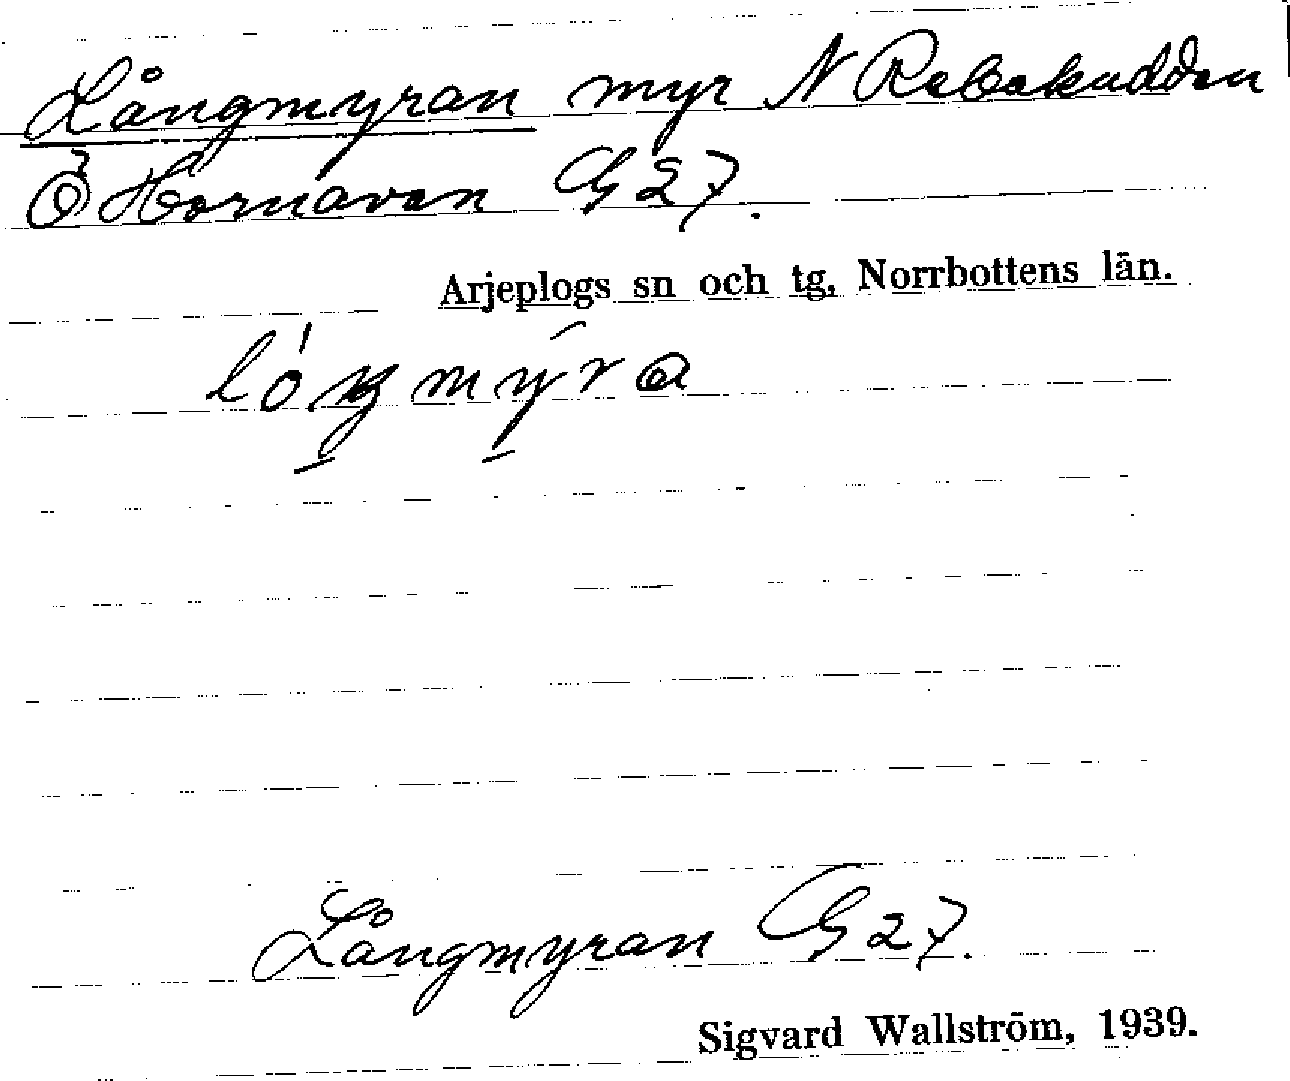 Långmyran myr N Rebakudden
Ö Hornavan G 27.
Arjeplogs sn och tg, Norrbottens län.
lóŋmýra
Långmyran G 27.
Sigvard Wallström, 1939.